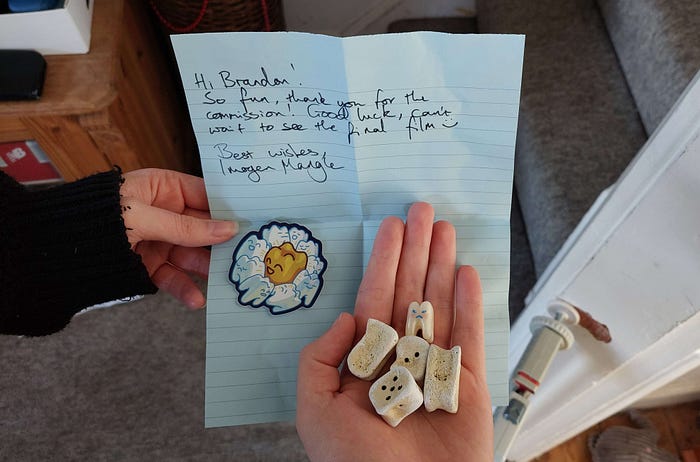 Hi Brandon!
So fun, thank you for the
commission! Good luck, can't
wait to see the final film
Best wishes,
Imogen Mangle